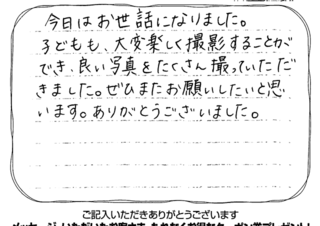 今日はお世話になりました。
子どもも、大変楽しく撮影することが
でき、良い写真をたくさん撮っていただ
きました。ぜひまたお願いしたいと思
います。ありがとうございました。
ご記入いただきありがとうございます